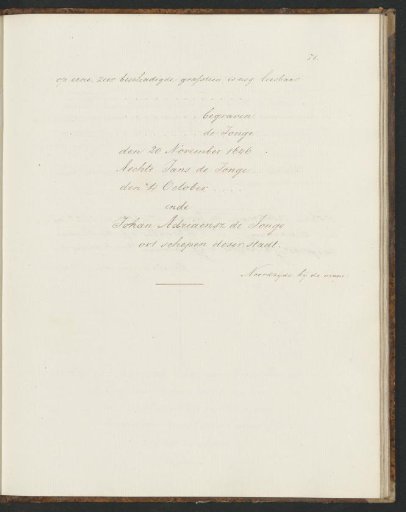 71.
op eene zeer beschadigde grafsteen is nog leesbaar
. . . . . . . . . . begraven
. . . . . . . . . . de Jonge
den 20 November 1646 .
Aechte Jans de Jonge
den 14 October . . . .
ende
Johan Adriaensz de Jonge
ovt schepen deser stadt.
Noordzijde bij de